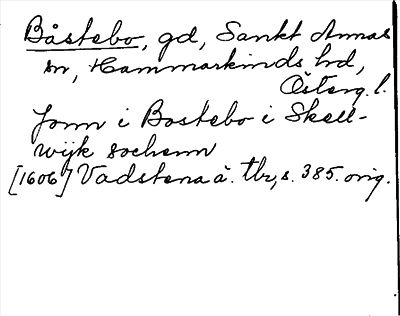 Båstebo, gd, Sankt Annas
sn, Hammarkinds hd,
Österg. l.
Jonn i Bostebo i Skell-
wijk sochenn
[1606] Vadstena ä. tbr, s. 385. orig.